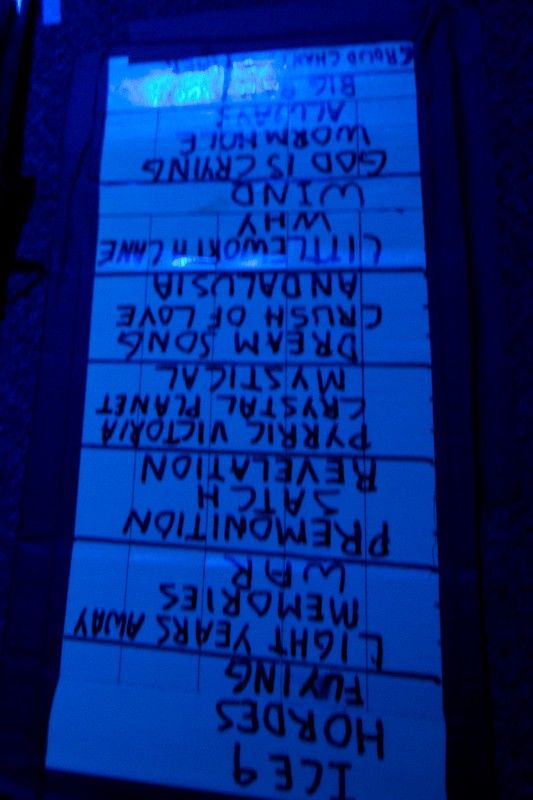 ICE 9
HORDES
FLYING
LIGHT YEARS AWAY
MEMORIES
WAR
PREMONITION
SATCH
REVELATION
PYRRIC VICTORIA
CRYSTAL PLANET
MYSTICAL
DREAM SONG
CRUSH OF LOVE
ANDALUSIA
LITTLEWORTH LANE
WHY
WIND
GOD IS CRYING
WORMHOLE
ALWAYS
BIG
CROWD CHANT